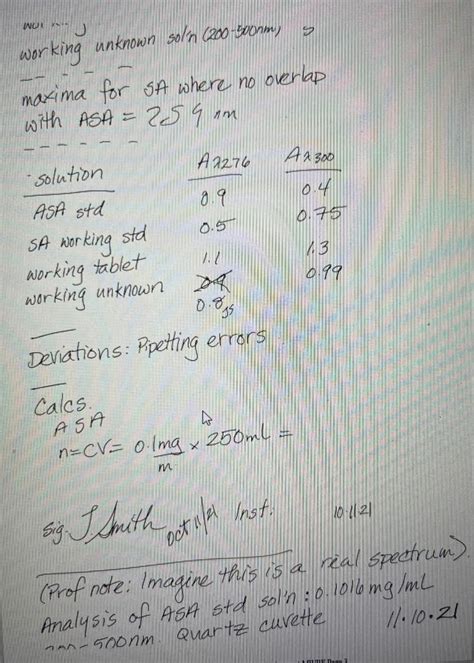 working unknown sol'n (200-500nm)
maxima for SA where no overlap
with ASA = 259 nm
solution Aλ276 Aλ300
ASA std 0.9 0.4
SA working std 0.5 0.75
working tablet 1.1 1.3
working unknown 0.9 0.99
0.8 JS
Deviations: Pipetting errors
Calcs.
ASA
n=CV= 0.1mg/m × 250ml =
Sig. J Smith Oct 11/21 Inst: 10.11.21
(Prof note: Imagine this is a real spectrum).
Analysis of ASA std sol'n: 0.1016mg/mL
200-500nm. Quartz cuvette 11.10.21